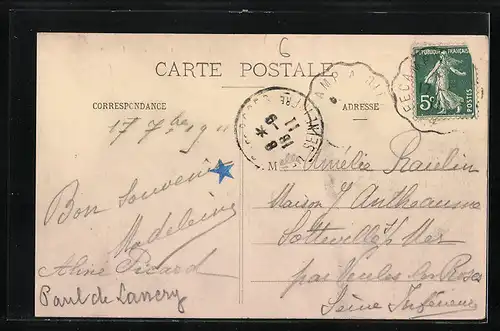 6
CARTE POSTALE
CORRESPONDANCE
ADRESSE
RÉPUBLIQUE FRANÇAISE
5c
POSTES
17 7bre 1911
Bon Souvenir
Madeleine
Aline Picard
Paul de Lancry
Melle Amélie Raulin
Maison J Antheaume
Sotteville s/ Mer
par Veules les Roses
Seine Inférieure